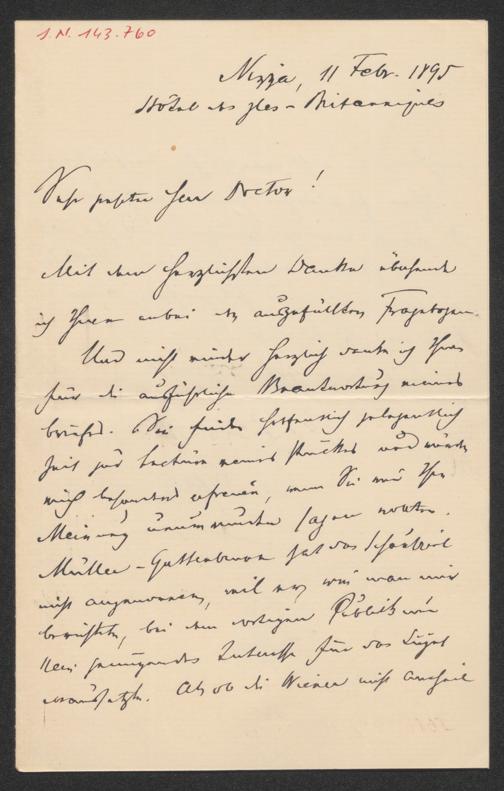 I.N. 143.760
Nizza, 11 Febr. 1895
Hôtel des Iles-Britanniques
Sehr geehrter Herr Doctor!
Mit dem herzlichsten Danke übersende
ich Ihnen anbei den ausgefüllten Fragebogen.
Und nicht minder herzlich danke ich Ihnen
für die ausführliche Beantwortung meines
Briefes. Sie finden hoffentlich gelegentlich
Zeit zur Lectüre meines Stückes und würde
mich besonders erfreuen, wenn Sie mir Ihre
Meinung unumwunden sagen wollten.
Müller-Guttenbrunn hat das Schauspiel
nicht angenommen, weil er, wie man mir
berichtete, bei dem dortigen Publikum
kein genügendes Interesse für das Sujet
voraussetzte. Als ob die Wiener nicht